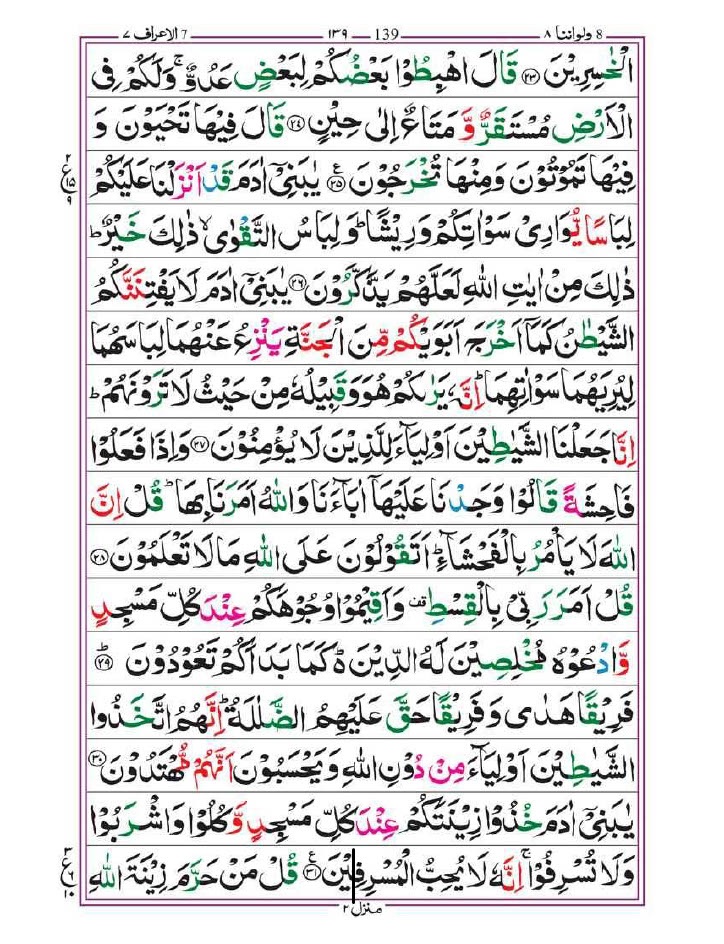 8 ولواننا ۸ — 139 — ۱۳۹ — 7 الاعراف ۷
الْخٰسِرِيْنَ ۝۲۳ قَالَ اهْبِطُوْا بَعْضُكُمْ لِبَعْضٍ عَدُوٌّ ۚ وَلَكُمْ فِى
الْاَرْضِ مُسْتَقَرٌّ وَّ مَتَاعٌ اِلٰى حِيْنٍ ۝۲۴ قَالَ فِيْهَا تَحْيَوْنَ وَ
فِيْهَا تَمُوْتُوْنَ وَمِنْهَا تُخْرَجُوْنَ ۝۲۵ يٰبَنِىْٓ اٰدَمَ قَدْ اَنْزَلْنَا عَلَيْكُمْ
لِبَاسًا يُّوَارِىْ سَوْاٰتِكُمْ وَرِيْشًا ؕ وَلِبَاسُ التَّقْوٰى ۙ ذٰلِكَ خَيْرٌ ؕ
ذٰلِكَ مِنْ اٰيٰتِ اللّٰهِ لَعَلَّهُمْ يَذَّكَّرُوْنَ ۝۲۶ يٰبَنِىْٓ اٰدَمَ لَا يَفْتِنَنَّكُمُ
الشَّيْطٰنُ كَمَاۤ اَخْرَجَ اَبَوَيْكُمْ مِّنَ الْجَنَّةِ يَنْزِعُ عَنْهُمَا لِبَاسَهُمَا
لِيُرِيَهُمَا سَوْاٰتِهِمَا ؕ اِنَّهٗ يَرٰىكُمْ هُوَ وَقَبِيْلُهٗ مِنْ حَيْثُ لَا تَرَوْنَهُمْ ؕ
اِنَّا جَعَلْنَا الشَّيٰطِيْنَ اَوْلِيَآءَ لِلَّذِيْنَ لَا يُؤْمِنُوْنَ ۝۲۷ وَاِذَا فَعَلُوْا
فَاحِشَةً قَالُوْا وَجَدْنَا عَلَيْهَاۤ اٰبَآءَنَا وَاللّٰهُ اَمَرَنَا بِهَا ؕ قُلْ اِنَّ
اللّٰهَ لَا يَاْمُرُ بِالْفَحْشَآءِ ؕ اَتَقُوْلُوْنَ عَلَى اللّٰهِ مَا لَا تَعْلَمُوْنَ ۝۲۸
قُلْ اَمَرَ رَبِّىْ بِالْقِسْطِ ۫ وَاَقِيْمُوْا وُجُوْهَكُمْ عِنْدَ كُلِّ مَسْجِدٍ
وَّادْعُوْهُ مُخْلِصِيْنَ لَهُ الدِّيْنَ ۬ؕ كَمَا بَدَاَكُمْ تَعُوْدُوْنَ ۝۲۹ؕ
فَرِيْقًا هَدٰى وَفَرِيْقًا حَقَّ عَلَيْهِمُ الضَّلٰلَةُ ؕ اِنَّهُمُ اتَّخَذُوا
الشَّيٰطِيْنَ اَوْلِيَآءَ مِنْ دُوْنِ اللّٰهِ وَيَحْسَبُوْنَ اَنَّهُمْ مُّهْتَدُوْنَ ۝۳۰
يٰبَنِىْٓ اٰدَمَ خُذُوْا زِيْنَتَكُمْ عِنْدَ كُلِّ مَسْجِدٍ وَّكُلُوْا وَاشْرَبُوْا
وَلَا تُسْرِفُوْا ۚ اِنَّهٗ لَا يُحِبُّ الْمُسْرِفِيْنَ ۝۳۱ قُلْ مَنْ حَرَّمَ زِيْنَةَ اللّٰهِ
منزل ۲
۲ ع ۱۵ ۹
۳ ع ۶ ۱۰